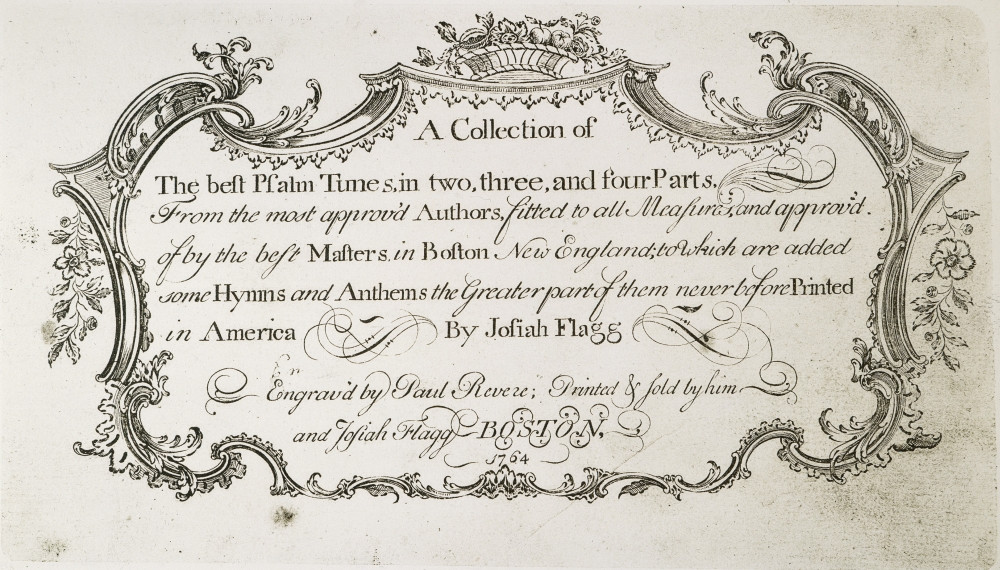 A Collection of
The beſt Pſalm Tunes, in two, three, and four Parts,
From the most approv'd Authors, fitted to all Measures, and approv'd.
of by the beſt Maſters in Boſton New England; to which are added
some Hymns and Anthems the Greater part of them never before Printed
in America By Joſiah Flagg
Engrav'd by Paul Revere; Printed & ſold by him
and Joſiah Flagg BOSTON,
1764